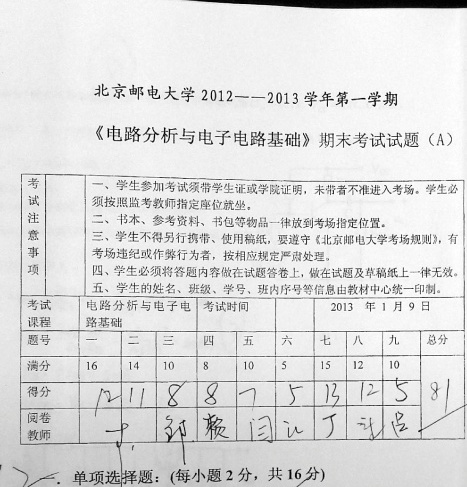 北京邮电大学 2012——2013 学年第一学期
《电路分析与电子电路基础》期末考试试题（A）
考试注意事项
一、学生参加考试须带学生证或学院证明，未带者不准进入考场。学生必
须按照监考教师指定座位就坐。
二、书本、参考资料、书包等物品一律放到考场指定位置。
三、学生不得另行携带、使用稿纸，要遵守《北京邮电大学考场规则》，有
考场违纪或作弊行为者，按相应规定严肃处理。
四、学生必须将答题内容做在试题答卷上，做在试题及草稿纸上一律无效。
五、学生的姓名、班级、学号、班内序号等信息由教材中心统一印制。
考试 电路分析与电子电 考试时间 2013 年 1 月 9 日
课程 路基础
题号 一 二 三 四 五 六 七 八 九 总分
满分 16 14 10 8 10 5 15 12 10
得分 12 11 8 8 7 5 13 12 5 81
阅卷 郭 赖 闫 丁 吕
教师
一. 单项选择题：(每小题 2 分，共 16 分)